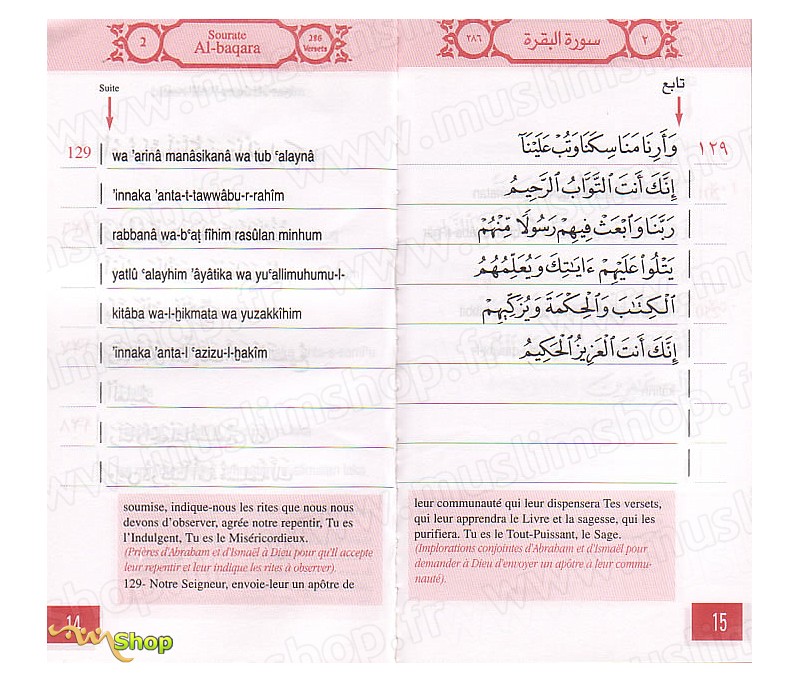 2
Sourate
Al-baqara
286
Versets
Suite
129
wa 'arinâ manâsikanâ wa tub ʿalaynâ
'innaka 'anta-t-tawwâbu-r-rahîm
rabbanâ wa-bʿaṯ fîhim rasûlan minhum
yatlû ʿalayhim 'âyâtika wa yuʿallimuhumu-l-
kitâba wa-l-ẖikmata wa yuzakkîhim
'innaka 'anta-l ʿazizu-l-ẖakîm
soumise, indique-nous les rites que nous nous
devons d'observer, agrée notre repentir, Tu es
l'Indulgent, Tu es le Miséricordieux.
(Prières d'Abraham et d'Ismaël à Dieu pour qu'Il accepte
leur repentir et leur indique les rites à observer).
129- Notre Seigneur, envoie-leur un apôtre de
14
Shop
٢٨٦
سورة البقرة
٢
تابع
١٢٩
وَأَرِنَا مَنَاسِكَنَا وَتُبْ عَلَيْنَآ
إِنَّكَ أَنتَ ٱلتَّوَّابُ ٱلرَّحِيمُ
رَبَّنَا وَٱبْعَثْ فِيهِمْ رَسُولًا مِّنْهُمْ
يَتْلُوا۟ عَلَيْهِمْ ءَايَـٰتِكَ وَيُعَلِّمُهُمُ
ٱلْكِتَـٰبَ وَٱلْحِكْمَةَ وَيُزَكِّيهِمْ
إِنَّكَ أَنتَ ٱلْعَزِيزُ ٱلْحَكِيمُ
leur communauté qui leur dispensera Tes versets,
qui leur apprendra le Livre et la sagesse, qui les
purifiera. Tu es le Tout-Puissant, le Sage.
(Implorations conjointes d'Abraham et d'Ismaël pour
demander à Dieu d'envoyer un apôtre à leur commu-
nauté).
15
www.muslimshop.fr